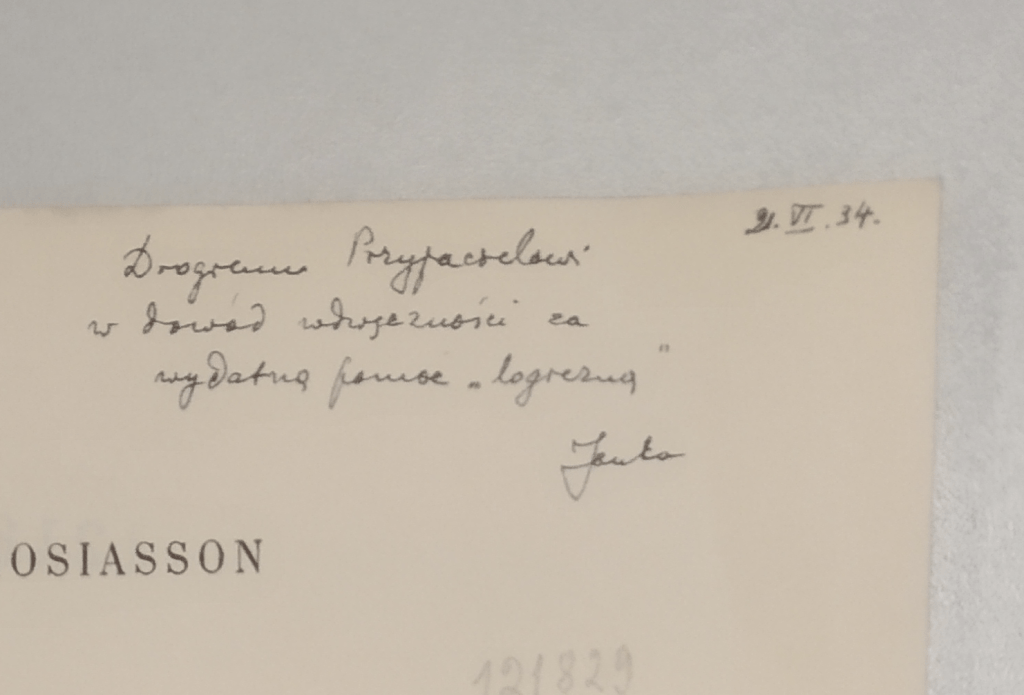 21. VI. 34.
Drogiemu Przyjacielowi
w dowód wdzięczności za
wydatną pomoc „logiczną”
Janka
OSIASSON
121829